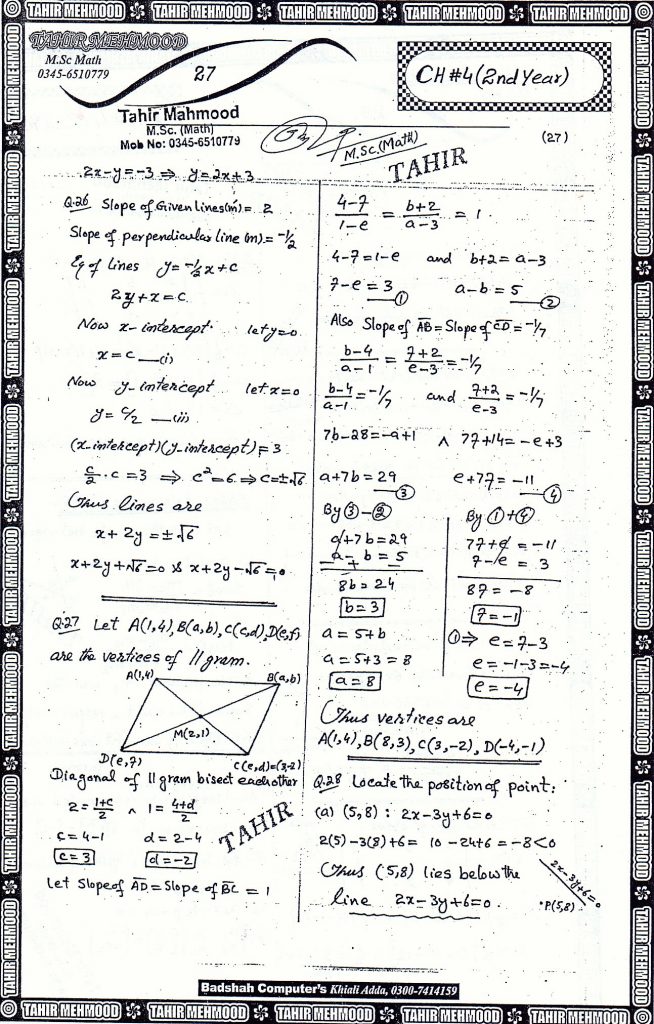 TAHIR MEHMOOD TAHIR MEHMOOD TAHIR MEHMOOD TAHIR MEHMOOD TAHIR MEHMOOD
TAHIR MEHMOOD
M.Sc Math
0345-6510779
27
CH #4 (2nd Year)
Tahir Mahmood
M.Sc. (Math)
Mob No: 0345-6510779
M.Sc.(Math)
TAHIR
(27)
2x-y=-3 ⇒ y=2x+3
Q.26 Slope of Given lines(m)= 2
Slope of perpendicular line (m)=-1/2
Eq of lines y=-1/2x+c
2y+x=c
Now x-intercept let y=0
x=c —(i)
Now y-intercept let x=0
y=c/2 —(ii)
(x-intercept)(y-intercept)=3
c/2 . c = 3 ⇒ c²=6 ⇒ c=±√6
Thus lines are
x+2y=±√6
x+2y+√6=0 & x+2y-√6=0
Q.27 Let A(1,4),B(a,b),C(c,d),D(e,f)
are the vertices of ||gram.
A(1,4) B(a,b)
M(2,1)
D(e,7) C(c,d)=(3,-2)
Diagonal of ||gram bisect each other
2=1+c/2 ∧ 1=4+d/2
c=4-1 d=2-4
c=3 d=-2
Let Slope of AD=Slope of BC = 1
4-7/1-e = b+2/a-3 = 1
4-7=1-e and b+2=a-3
7-e=3 —① a-b=5 —②
Also Slope of AB=Slope of CD=-1/7
b-4/a-1 = 7+2/e-3 = -1/7
b-4/a-1=-1/7 and 7+2/e-3 = -1/7
7b-28=-a+1 ∧ 77+14=-e+3
a+7b=29 —③ e+77=-11 —④
By ③-②
a+7b=29
a-b=5
8b=24
b=3
a=5+b
a=5+3=8
a=8
By ①+④
77+e=-11
7-e=3
87=-8
7=-1
①⇒ e=7-3
e=-1-3=-4
e=-4
Thus vertices are
A(1,4),B(8,3),C(3,-2),D(-4,-1)
Q.28 Locate the position of point:
(a) (5,8) : 2x-3y+6=0
2(5)-3(8)+6= 10-24+6=-8<0
Thus (5,8) lies below the
line 2x-3y+6=0.
2x-3y+6=0
.P(5,8)
TAHIR
Badshah Computer's Khiali Adda, 0300-7414159
TAHIR MEHMOOD TAHIR MEHMOOD TAHIR MEHMOOD TAHIR MEHMOOD TAHIR MEHMOOD